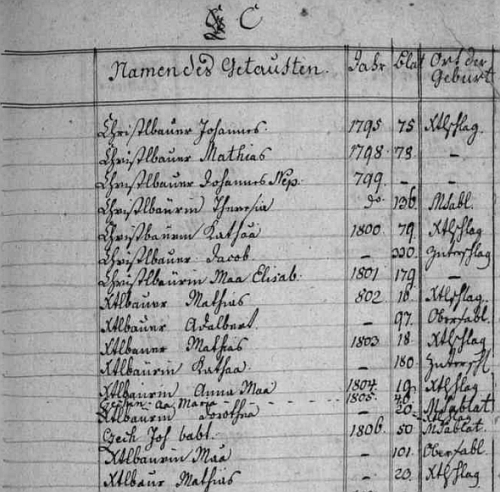 C
Namen des Getauften. Jahr Blat Ort der Geburt
Christlbauer Johannes. 1795 75 Xtlschlag
Christlbauer Mathias 1798 78. –
Christlbauer Johannes Nep. 799 – –
Christlbaurin Theresia do 136. MSabl.
Christbaurin Kathaa 1800 79. Xtlschlag
Christlbauer Jacob – Zuterschlag
Christlbaurin Maa Elisab. 1801 179. –
Xtlbauer Mathias 802 16. Xtlschlag.
Xtlbauer Adalbert. – 97. Obersabl.
Xtlbauer Mathias 1803 18 Xtlschlag
Xtlbaurin Kathaa. – 180.
Xtlbaurin Anna Maa 1804 19 Xtlschlag
Maria 1805.
Xtlbaurin Dorothea – 20. MSablat
Czech Joh babt. 1806 50 MSablat.
Xtlbaurin Maa – 101. Obersabl.
Xtlbaur Mathias – 23. Xtlschlag